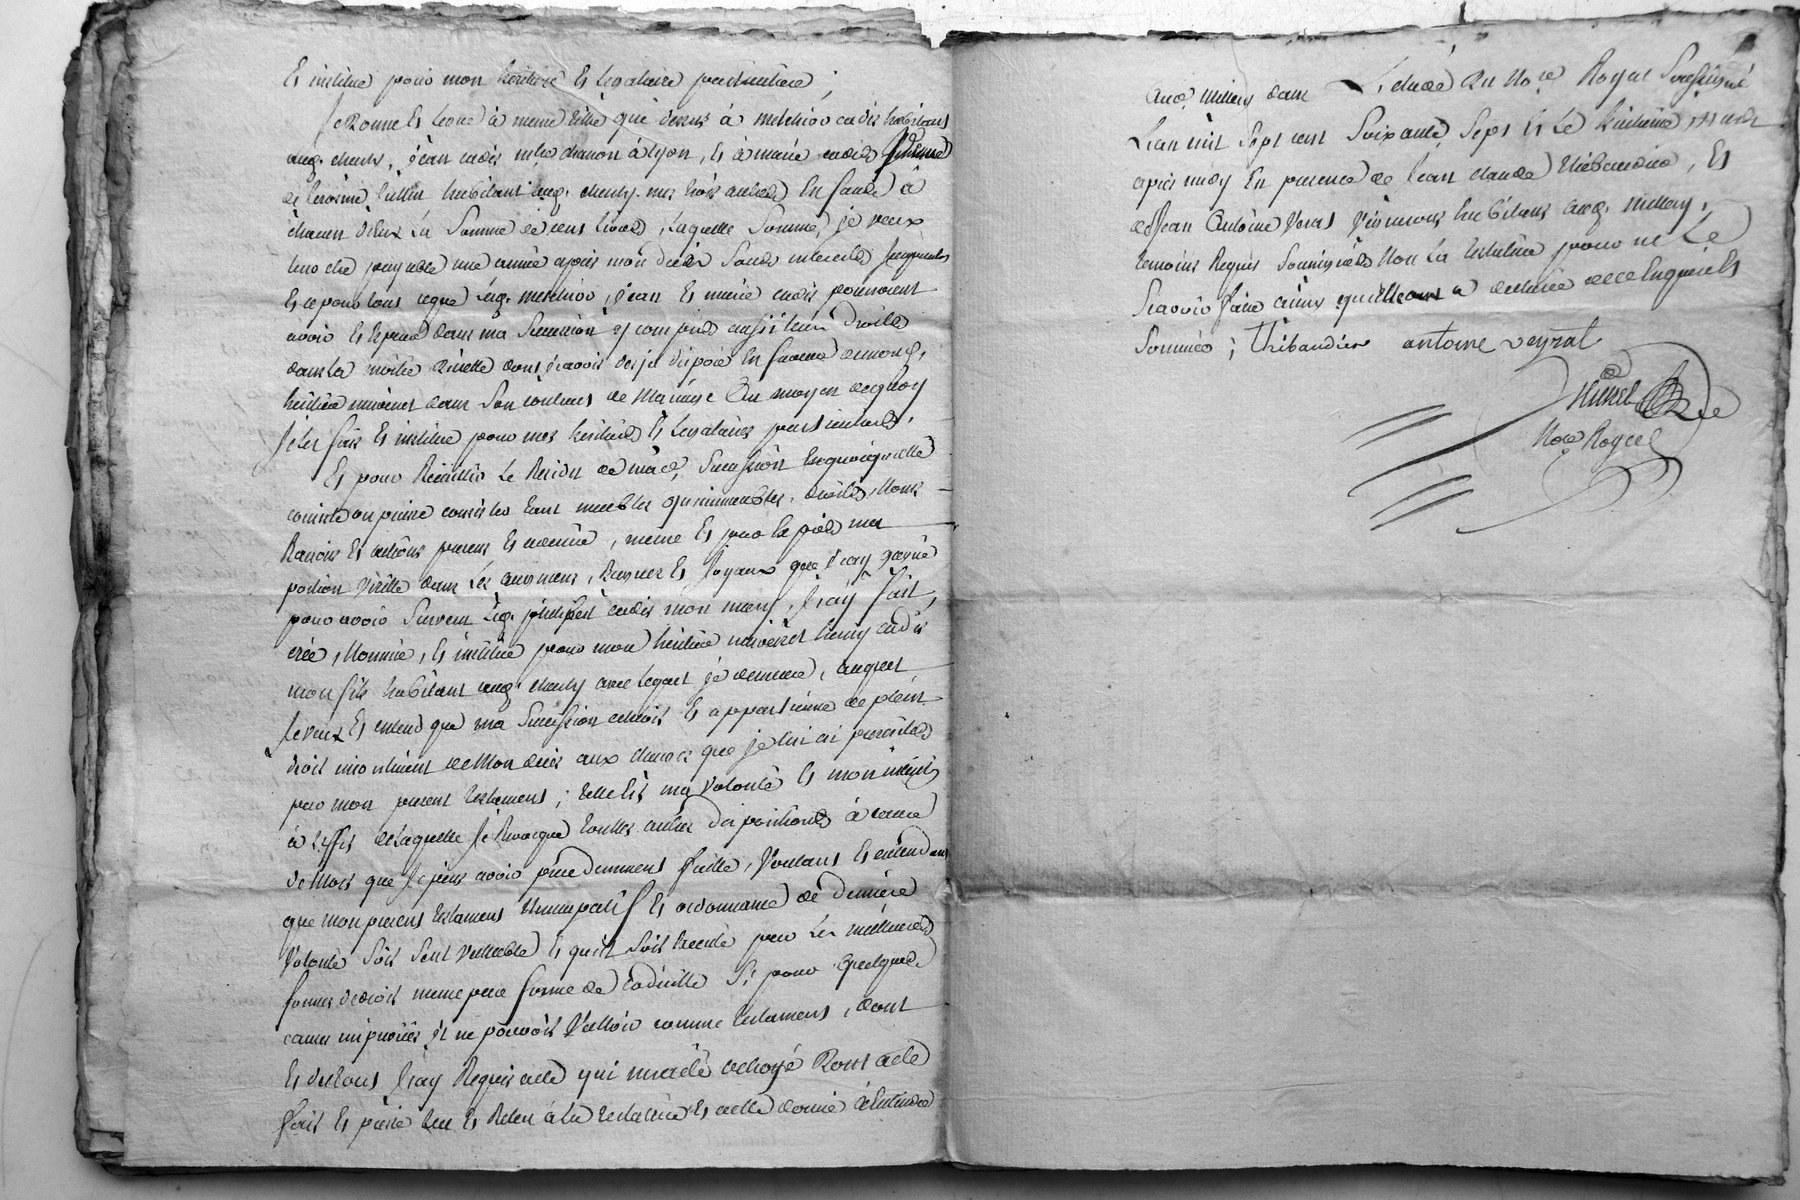 Et institue pour mon heritiere Et Legataire particuliere ;
Je Donne Et Legue à meme titre que dessus à melchior cadis habitant
aud. , jean cadis chanoi à lyon, Et à marie cadis femme
de habitant aud. mes trois autres Enfants à
chacun d'eux La Somme de cens livres, Laquelle Somme, je veux
leur etre payable une année apres mon deces Sans interets jusqu'alors
Et ce pour tous ceque Led. melchior, jean Et marie cadis pourroient
avoir Et dans ma Succession y compris aussi leurs droits
dans la moitié dicelle dont j'avois deja dispose En faveur de mond.
heritier universel dans Son contract de Mariage Au moyen dequoy
je les fais Et institue pour mes heritiers Et Legataires particuliers,
Et pour Recueillir Le Residu de mad. Succession Enquoiquelle
consiste ou puisse consister tant meubles qu'immeubles, droits, Noms
Raisons Et actions presens Et avenir, meme Et par Expres ma
portion virille dans Les augmens, bagues Et Joyaux que j'ay gagné
pour avoir Survecu Led. cadis mon mary, J'ay fait,
créé, Nommé, Et institué pour mon heritier universel cadis
mon fils habitant aud. avec lequel je demeure, auquel
je veux Et entend que ma Succession echoit Et appartienne de plein
droit incontinent apres Mon deces aux charges que je lui ai prescrites
par mon present testament ; telle Est ma volonté Et mon
à L'effet de Laquelle Je Revoque toutes autres dispositions à cause
de Mort que je puis avoir precedemment faitte, Voulant Et entendant
que mon present testament Nuncupatif Et ordonnance de derniere
Volonté Soit Seul vallable Et qu'il Soit Executé par Les meilleures
formes de droit meme par forme de Codicille Si pour quelques
causes impreveües il ne pouvoit Valloir comme testament, dont
Et du tout J'ay Requis acte qui m'a été octroyé Dont acte
fait Et passé leu Et Releu à la testatrice Et à elle donné à Entendre
aud. millery dans L'etude du No.re Royal Soussigné
L'an mil Sept cent Soixante Sept Et Le huitieme mars
apres midy En presence de Jean claude thibaudier, Et
de Jean Antoine Veyrat Vignerons habitans aud. millery,
temoins Requis Soussignés Non La testatrice pour ne Le
Scavoir faire ainsi quelle a declaré de ce Enquise Et
Sommée ; Thibaudier antoine veyrat
No.re Royal